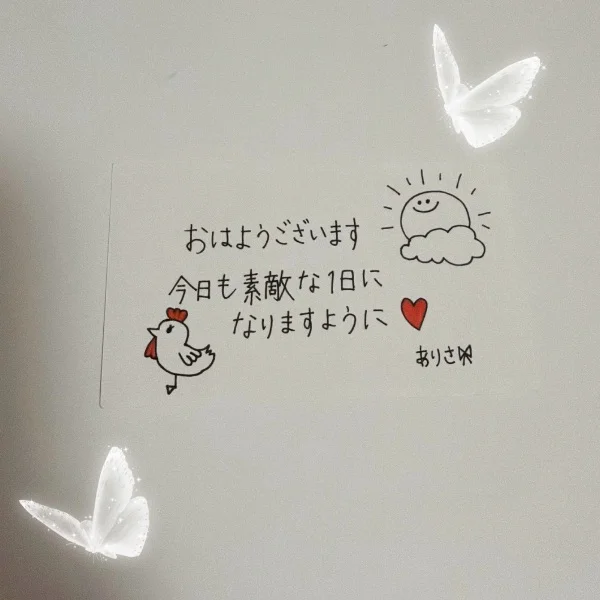 おはようございます
今日も素敵な1日に
なりますように
ありさ